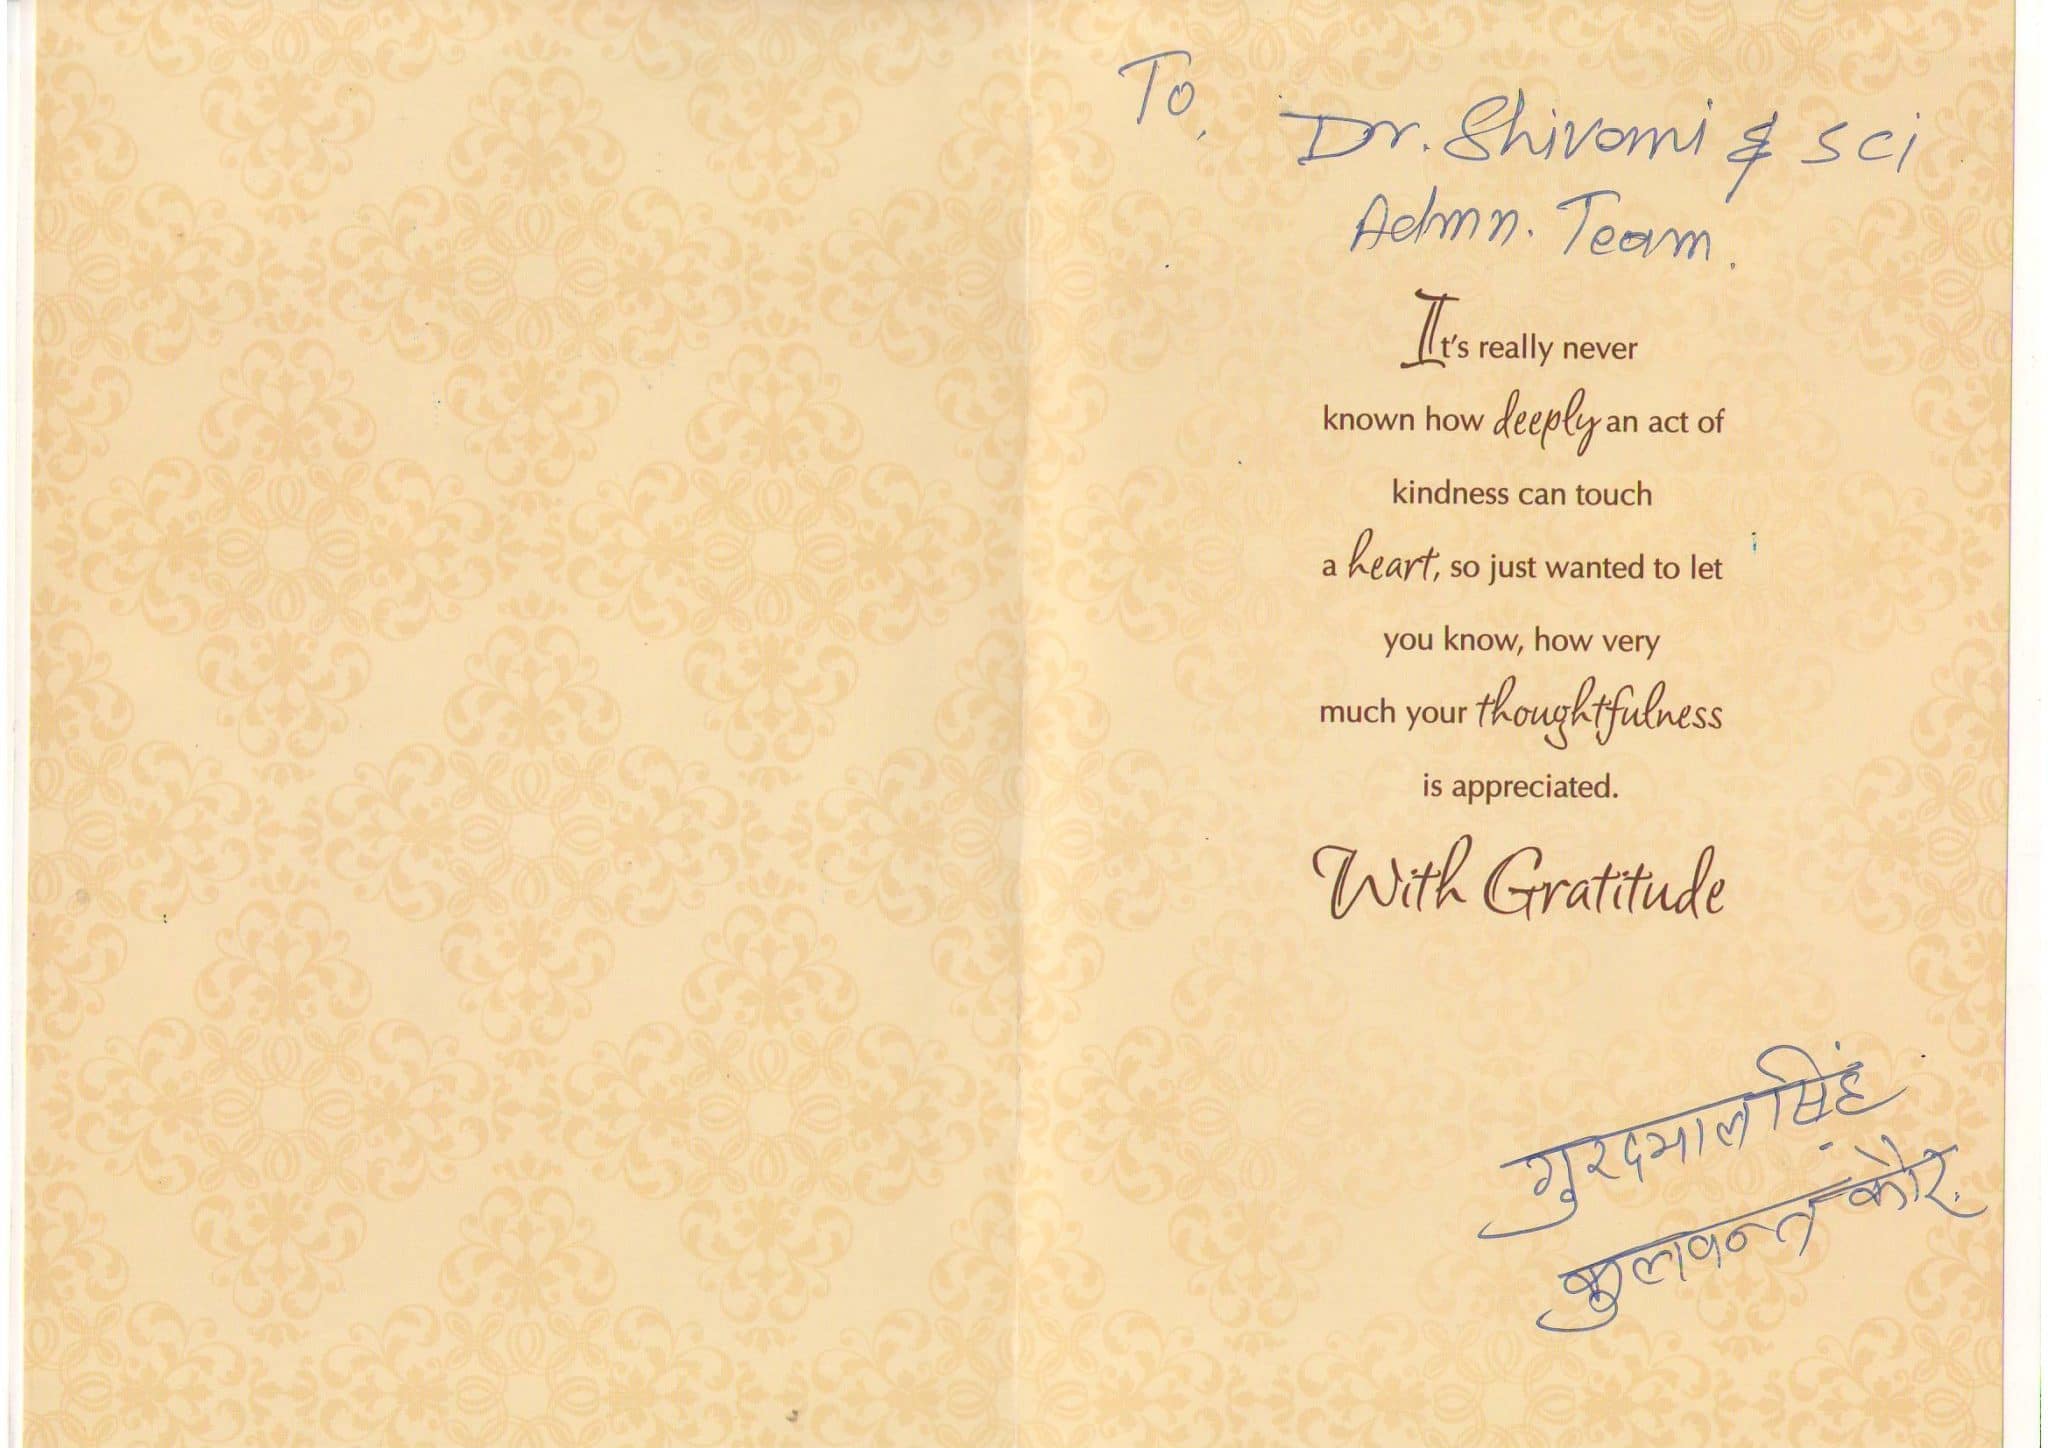 To,
Dr. Shivami & SCI
Admn. Team.
It's really never
known how deeply an act of
kindness can touch
a heart, so just wanted to let
you know, how very
much your thoughtfulness
is appreciated.
With Gratitude
गुरदभाल सिंह
कुलवन्त कौर.